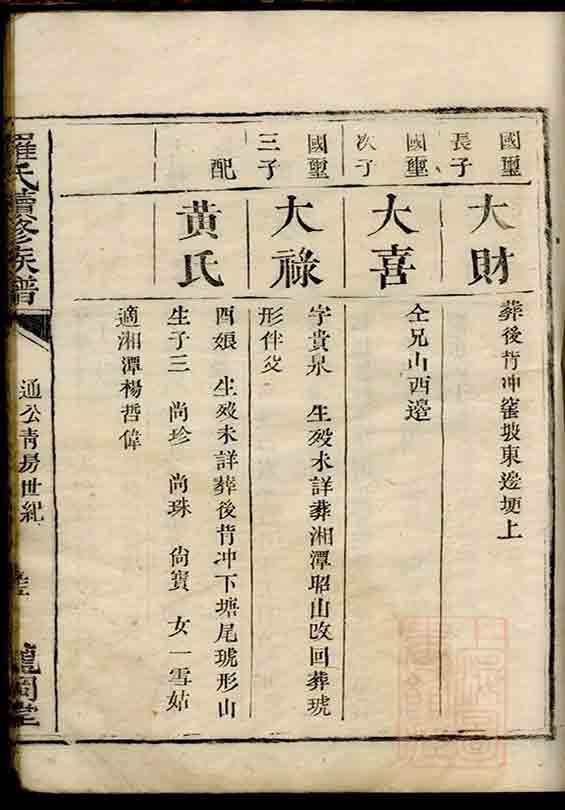 國璽
長子
大財
葬後背冲窰坡東邊埂上
國璽
次子
大喜
仝兄山西邊
國璽
三子
大祿
字貴泉 生歿未詳葬湘潭昭山改回葬琥
形伴父
配
黃氏
酉娘 生歿未詳葬後背冲下塘尾琥形山
生子三 尚珍 尚珠 尙寳 女一雪姑
適湘潭楊哲偉
羅氏續修族譜
通公青房世紀